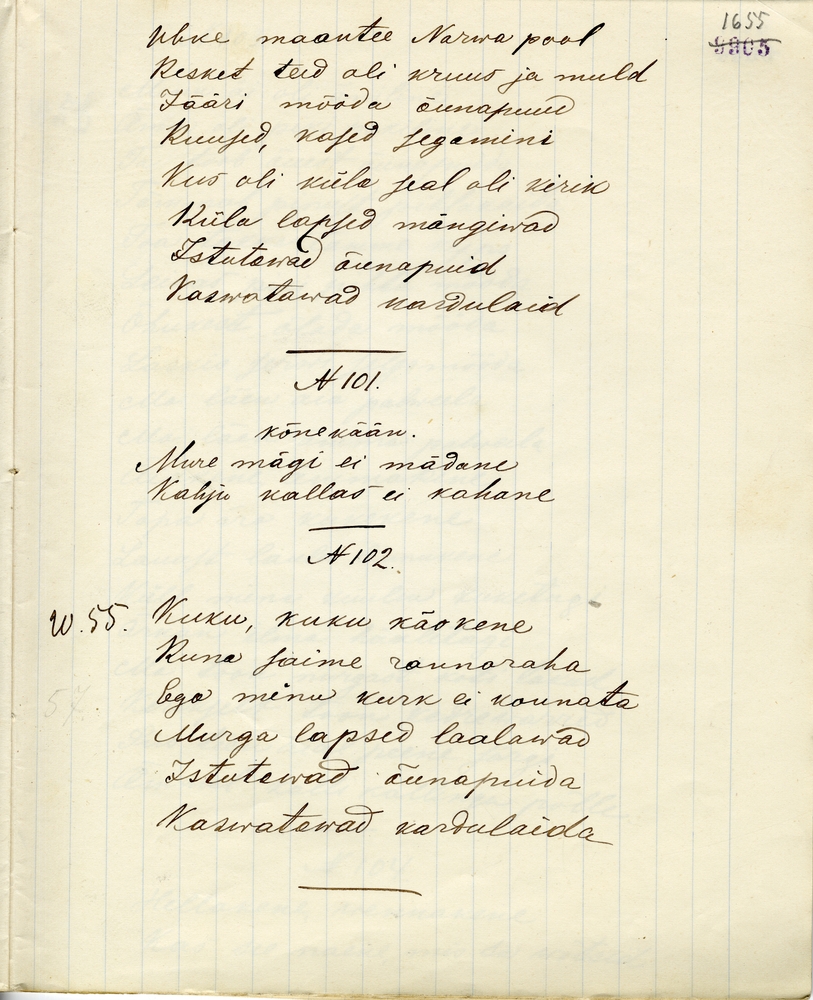 1655
9905
Ubke maantee Narwa pool
Kesket teid oli kruus ja muld
Jääri mööda õunapuud
Kuused, kased segamini
Kus oli küla seal oli kirik
Küla lapsed mängiwad
Istutawad õunapuid
Kaswatawad kardulaid
N 101.
kõnekään.
Mure mägi ei mädane
Kahju kallas ei kahane
N 102.
W. 55. Kuku, kuku käokene
Kuna saime rannaraha
Ega minu kurk ei kounata
Murga lapsed laalawad
57.
Istutawad õunapuida
Kaswatawad kardulaida